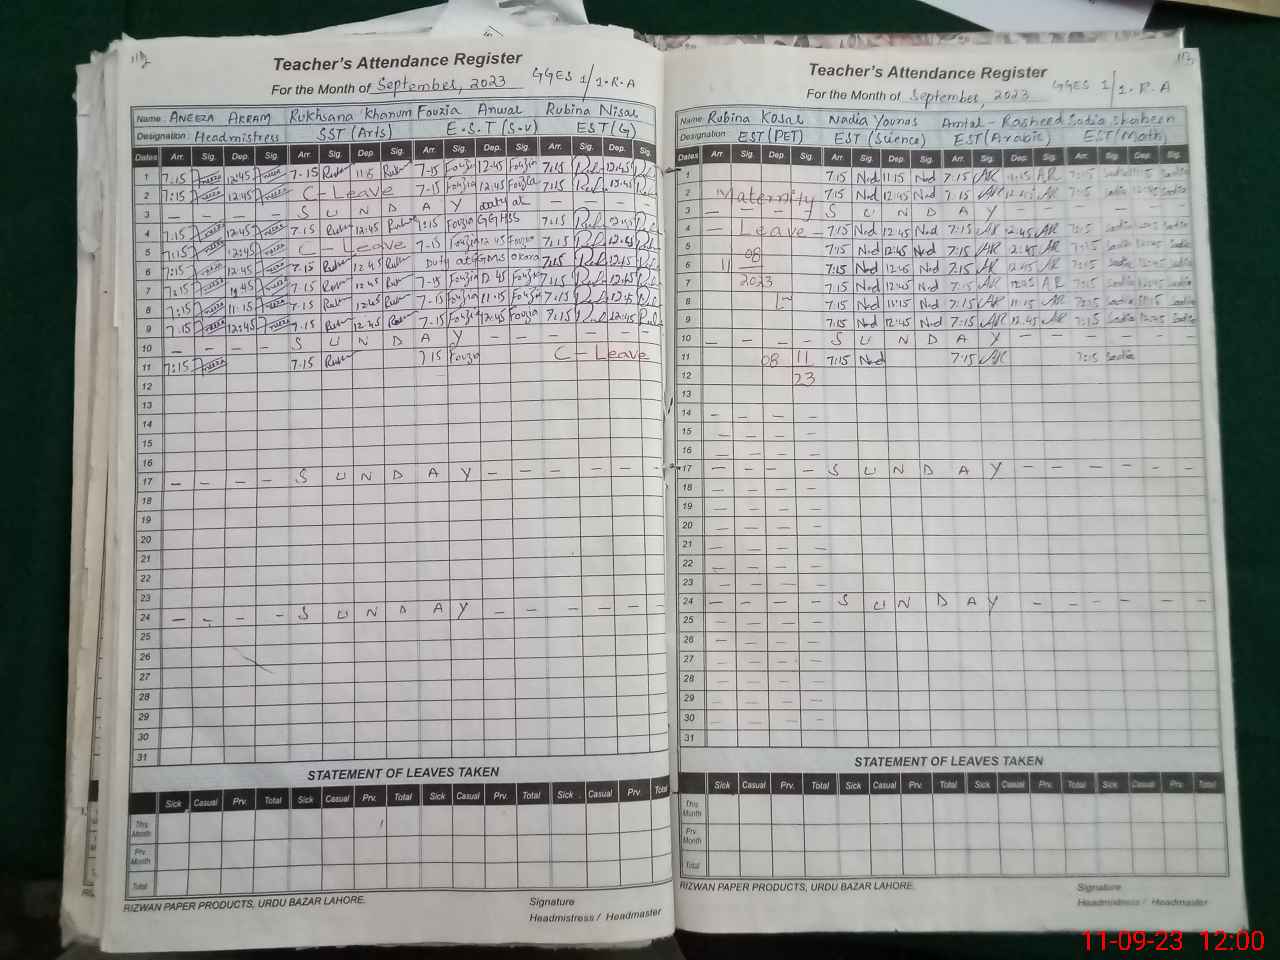 Teacher's Attendance Register
For the Month of September, 2023 GGES 1/1.R.A
Name ANEEZA AKRAM Rukhsana Khanum Fouzia Anwar Rubina Nisar
Designation Headmistress SST (Arts) E.S.T (S.V) EST (G)
Dates Arr. Sig. Dep. Sig. Arr. Sig. Dep. Sig. Arr. Sig. Dep. Sig. Arr. Sig. Dep. Sig.
1 7:15 12:45 7-15 7-15 Fouzia 12:45 Fouzia 7:15 12:45
2 7:15 12:45 C-Leave 7-15 Fouzia 12:45 Fouzia 7:15 12:45
3 – – – – S U N D A Y
4 7:15 12:45 7.15 12:45 7:15 Fouzia GGHSS 7:15 12:45
5 7:15 12:45 C-Leave 7-15 Fouzia 12:45 Fouzia 7:15 12:45
6 7:15 12:45 7.15 12:45 Duty at Okara 7:15 12:45
7 7:15 12:45 7.15 12:45 7-15 Fouzia 12:45 Fouzia 7:15 12:45
8 7:15 11:15 7.15 7-15 Fouzia 11:15 Fouzia 7:15
9 7:15 12:45 7.15 12:45 7-15 Fouzia 12:45 Fouzia 7:15 12:45
10 – – – – S U N D A Y
11 7:15 7.15 7 15 Fouzia C-Leave
12
13
14
15
16
17 – – – – S U N D A Y – – – – – –
18
19
20
21
22
23
24 – – – – S U N D A Y – – – – – –
25
26
27
28
29
30
31
STATEMENT OF LEAVES TAKEN
Sick Casual Prv. Total Sick Casual Prv. Total Sick Casual Prv. Total Sick Casual Prv. Total
This Month
Prv. Month
Total
RIZWAN PAPER PRODUCTS, URDU BAZAR LAHORE.
Signature
Headmistress / Headmaster
Teacher's Attendance Register
For the Month of September, 2023 GGES 1/1.R.A
Name Rubina Kosar Nadia Younas Amtal-Rasheed Sadia Shaheen
Designation EST (PET) EST (Science) EST (Arabic) EST (Math)
Dates Arr. Sig. Dep. Sig. Arr. Sig. Dep. Sig. Arr. Sig. Dep. Sig. Arr. Sig. Dep. Sig.
1 7:15 Nad 11:15 Nad 7:15 AR 11:15 AR 7:15 Sadia 11:15 Sadia
2 Maternity 7:15 Nad 12:45 Nad 7:15 AR 12:45 AR 7:15 Sadia 12:45 Sadia
3 – – – – S U N D A Y – – – – – –
4 – Leave – 7:15 Nad 12:45 Nad 7:15 AR 12:45 AR 7:15 Sadia 12:45 Sadia
5 08 7:15 Nad 12:45 Nad 7:15 AR 12:45 AR 7:15 Sadia 12:45 Sadia
6 11 7:15 Nad 12:45 Nad 7:15 AR 12:45 AR 7:15 Sadia 12:45 Sadia
7 2023 7:15 Nad 12:45 Nad 7:15 AR 12:45 AR 7:15 Sadia 12:45 Sadia
8 7:15 Nad 11:15 Nad 7:15 AR 11:15 AR 7:15 Sadia 11:15 Sadia
9 7:15 Nad 12:45 Nad 7:15 AR 12:45 AR 7:15 Sadia 12:45 Sadia
10 S U N D A Y – – – – – –
11 08 11 7:15 Nad 7:15 AR 7:15 Sadia
12 23
13
14 – – – –
15 – – – –
16 – – – –
17 – – – – S U N D A Y – – – – – –
18 – – – –
19 – – – –
20 – – – –
21 – – – –
22 – – – –
23 – – – –
24 – – – – S U N D A Y – – – – – –
25 – – – –
26 – – – –
27 – – – –
28 – – – –
29 – – – –
30 – – – –
31
STATEMENT OF LEAVES TAKEN
Sick Casual Prv. Total Sick Casual Prv. Total Sick Casual Prv. Total Sick Casual Prv. Total
This Month
Prv. Month
Total
RIZWAN PAPER PRODUCTS, URDU BAZAR LAHORE.
Signature
Headmistress / Headmaster
11-09-23 12:00